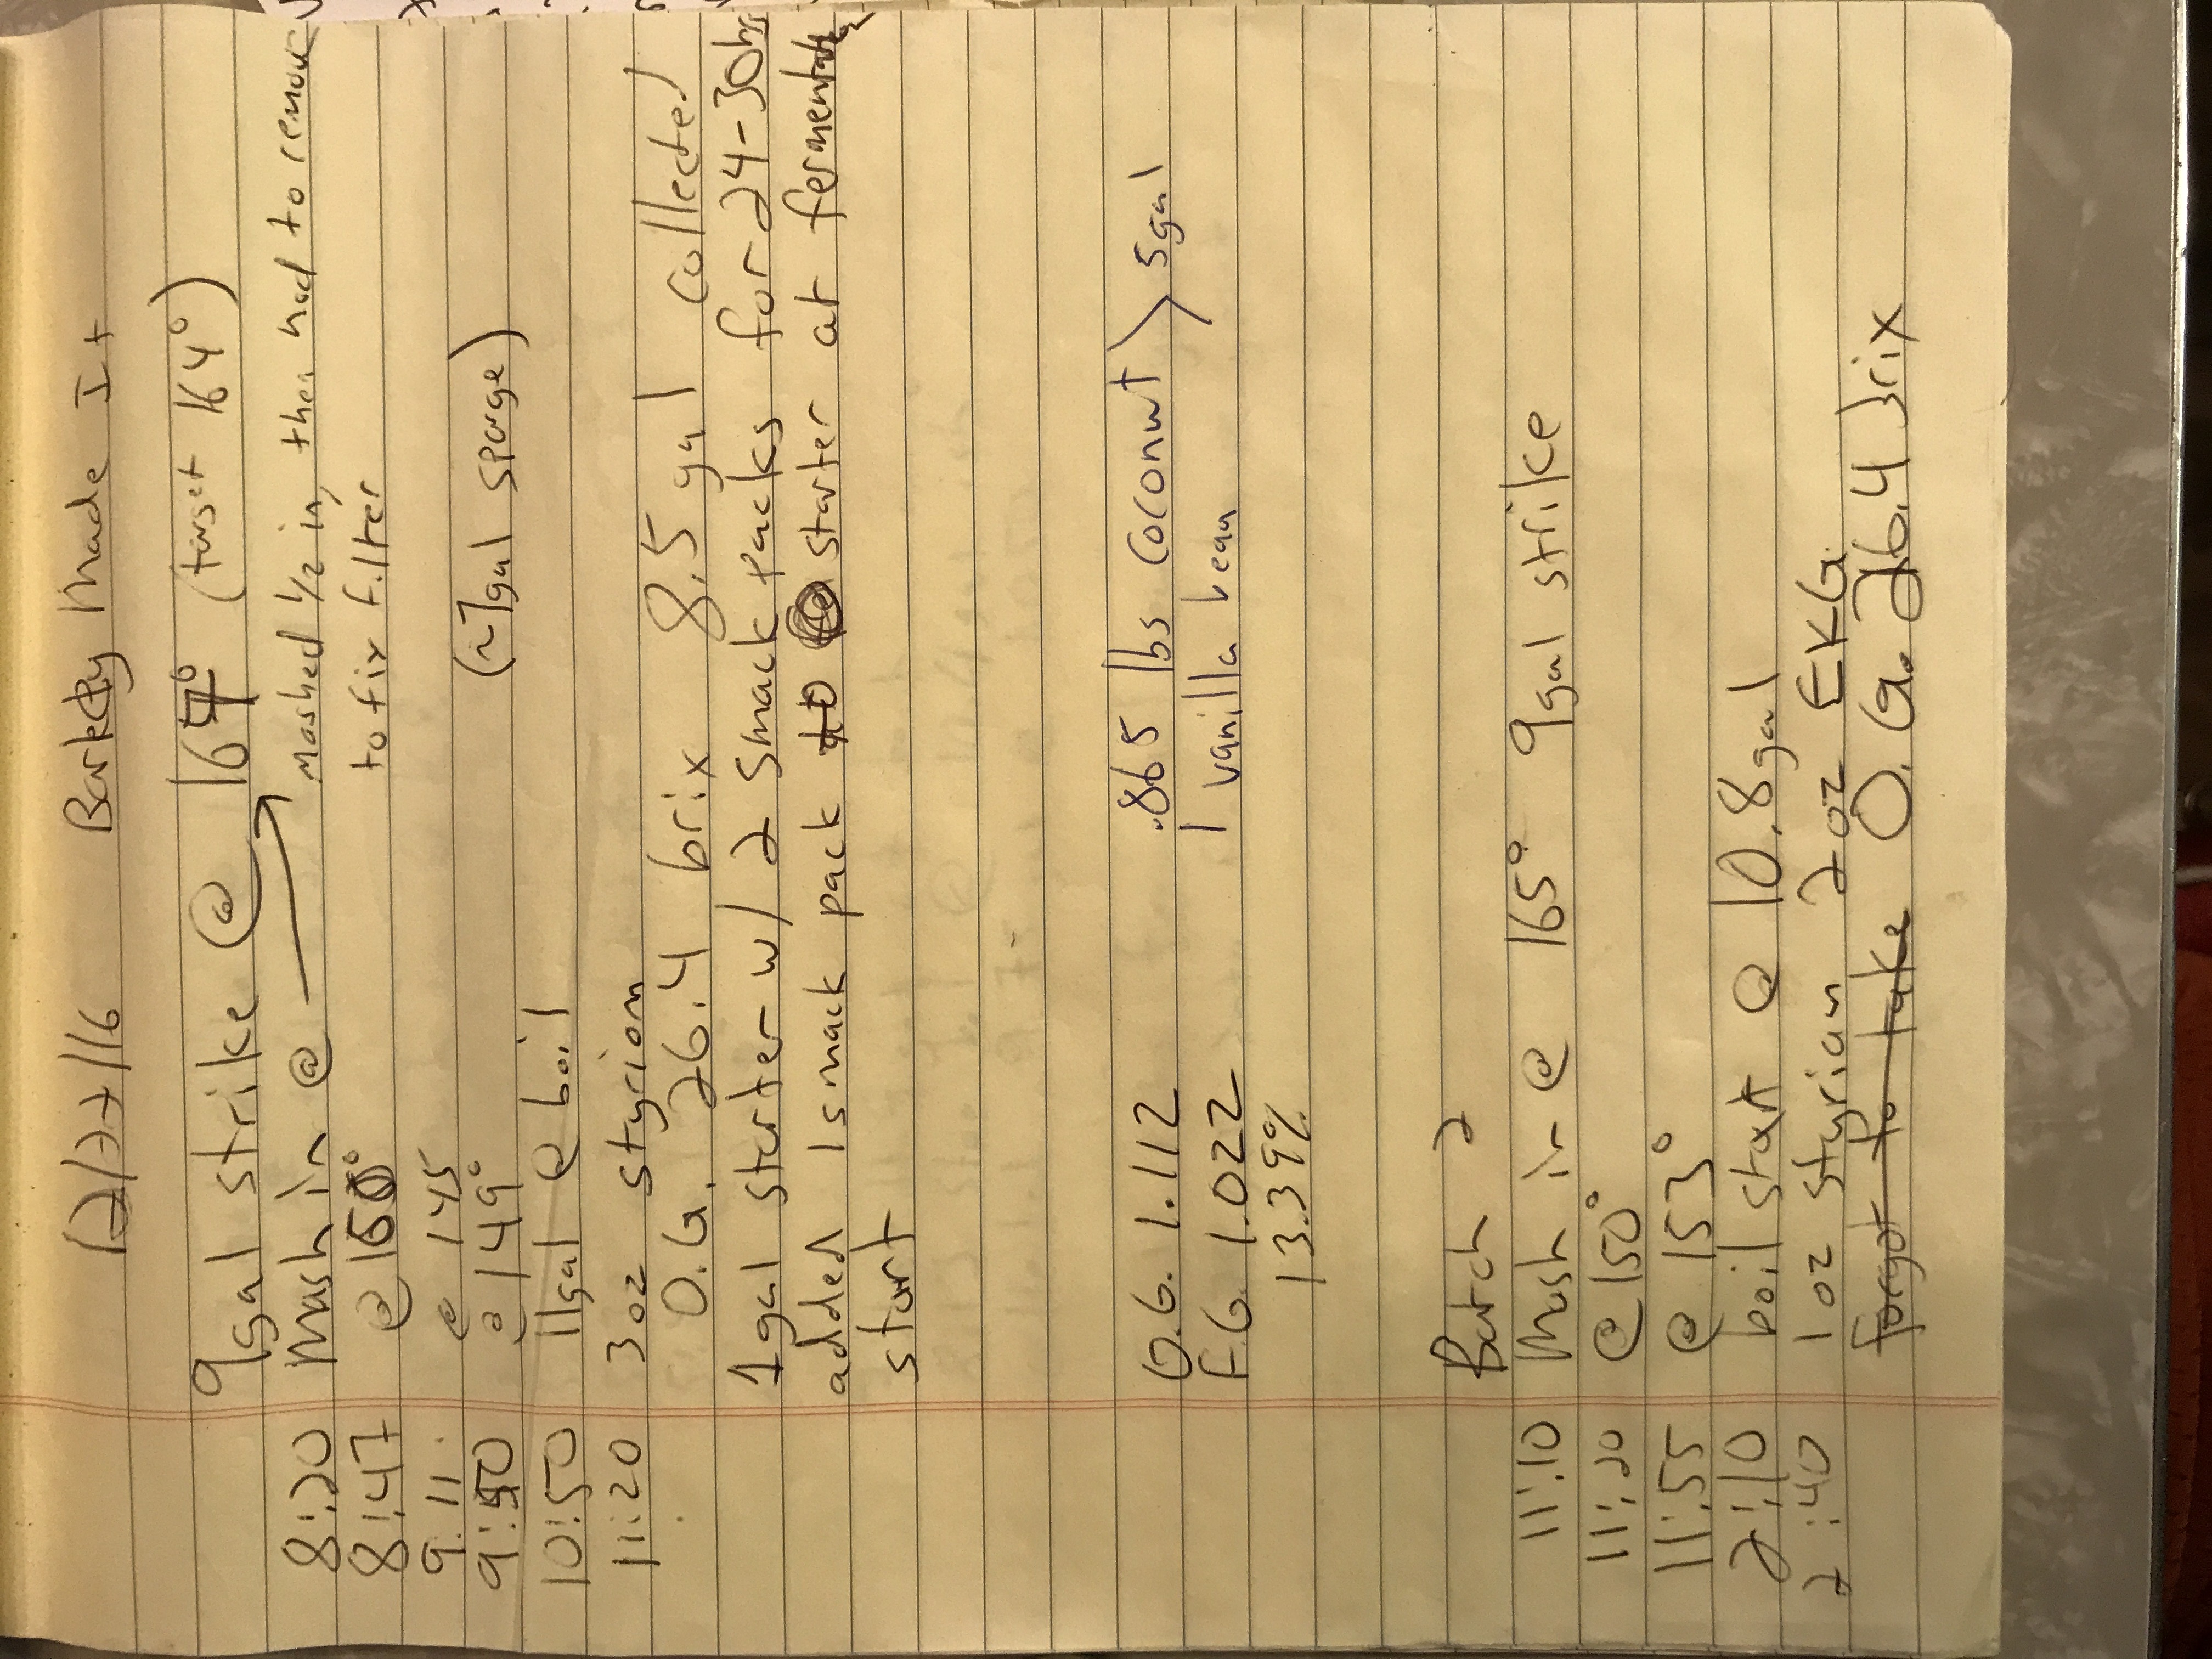 12/27/16 Barkley Made It
9gal strike @ 164° (target 164°)
8:20 Mash in @ mashed 1/2 in, then had to remove
8:47 @ 150° to fix filter
9:11 @ 145
9:50 @ 149° (~7gal sparge)
10:50 11gal @ boil
11:20 3oz styrion
O.G. 26.4 brix 8.5 gal collected
1gal starter w/ 2 smack packs for 24-30hrs
added 1 smack pack to starter at fermentation
start
O.G. 1.112 .865 lbs coconut > 5gal
F.G. 1.022 1 vanilla bean
13.39%
Batch 2
11:10 Mash in @ 165° 9gal strike
11:20 @ 150°
11:55 @ 153°
2:10 boil start @ 10.8gal
2:40 1oz styrian 2oz EKG
forgot to take O.G. 26.4 brix